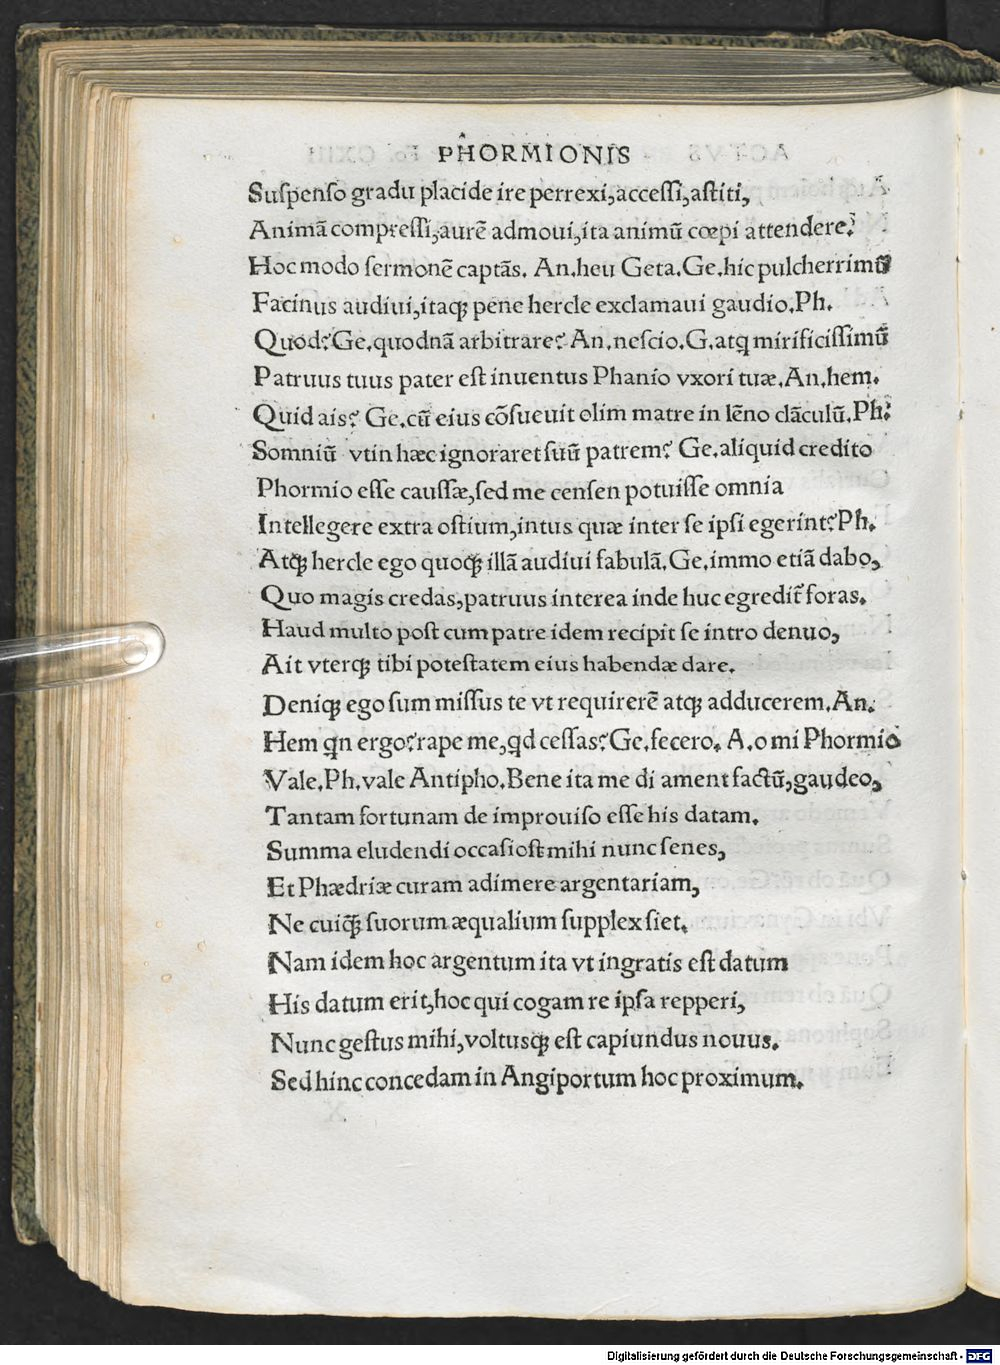 PHORMIONIS
Suspenso gradu placide ire perrexi, accessi, astiti,
Animã compressi, aurẽ admoui, ita animũ cœpi attendere?
Hoc modo sermonẽ captãs. An. heu Geta. Ge. hic pulcherrimũ
Facinus audiui, itaqꝫ pene hercle exclamaui gaudio. Ph.
Quod? Ge. quodnã arbitrare? An. nescio. G. atqꝫ mirificissimũ
Patruus tuus pater est inuentus Phanio vxori tuæ. An. hem.
Quid ais? Ge. cũ eius cõsueuit olim matre in lẽno clãculũ. Ph.
Somniũ vtin hæc ignoraret suũ patrem? Ge. aliquid credito
Phormio esse caussæ, sed me censen potuisse omnia
Intellegere extra ostium, intus quæ inter se ipsi egerint? Ph.
Atqꝫ hercle ego quoqꝫ illã audiui fabulã. Ge. immo etiã dabo,
Quo magis credas, patruus interea inde huc egredit̃ foras.
Haud multo post cum patre idem recipit se intro denuo,
Ait vterqꝫ tibi potestatem eius habendæ dare.
Deniqꝫ ego sum missus te vt requirerẽ atqꝫ adducerem. An.
Hem qn ergo? rape me, qd cessas? Ge. fecero. A. o mi Phormio
Vale. Ph. vale Antipho. Bene ita me di ament factũ, gaudeo,
Tantam fortunam de improuiso esse his datam.
Summa eludendi occasiost mihi nunc senes,
Et Phædriæ curam adimere argentariam,
Ne cuiqꝫ̃ suorum æqualium supplex siet.
Nam idem hoc argentum ita vt ingratis est datum
His datum erit, hoc qui cogam re ipsa repperi,
Nunc gestus mihi, voltusqꝫ est capiundus nouus.
Sed hinc concedam in Angiportum hoc proximum.
Digitalisierung gefördert durch die Deutsche Forschungsgemeinschaft - DFG